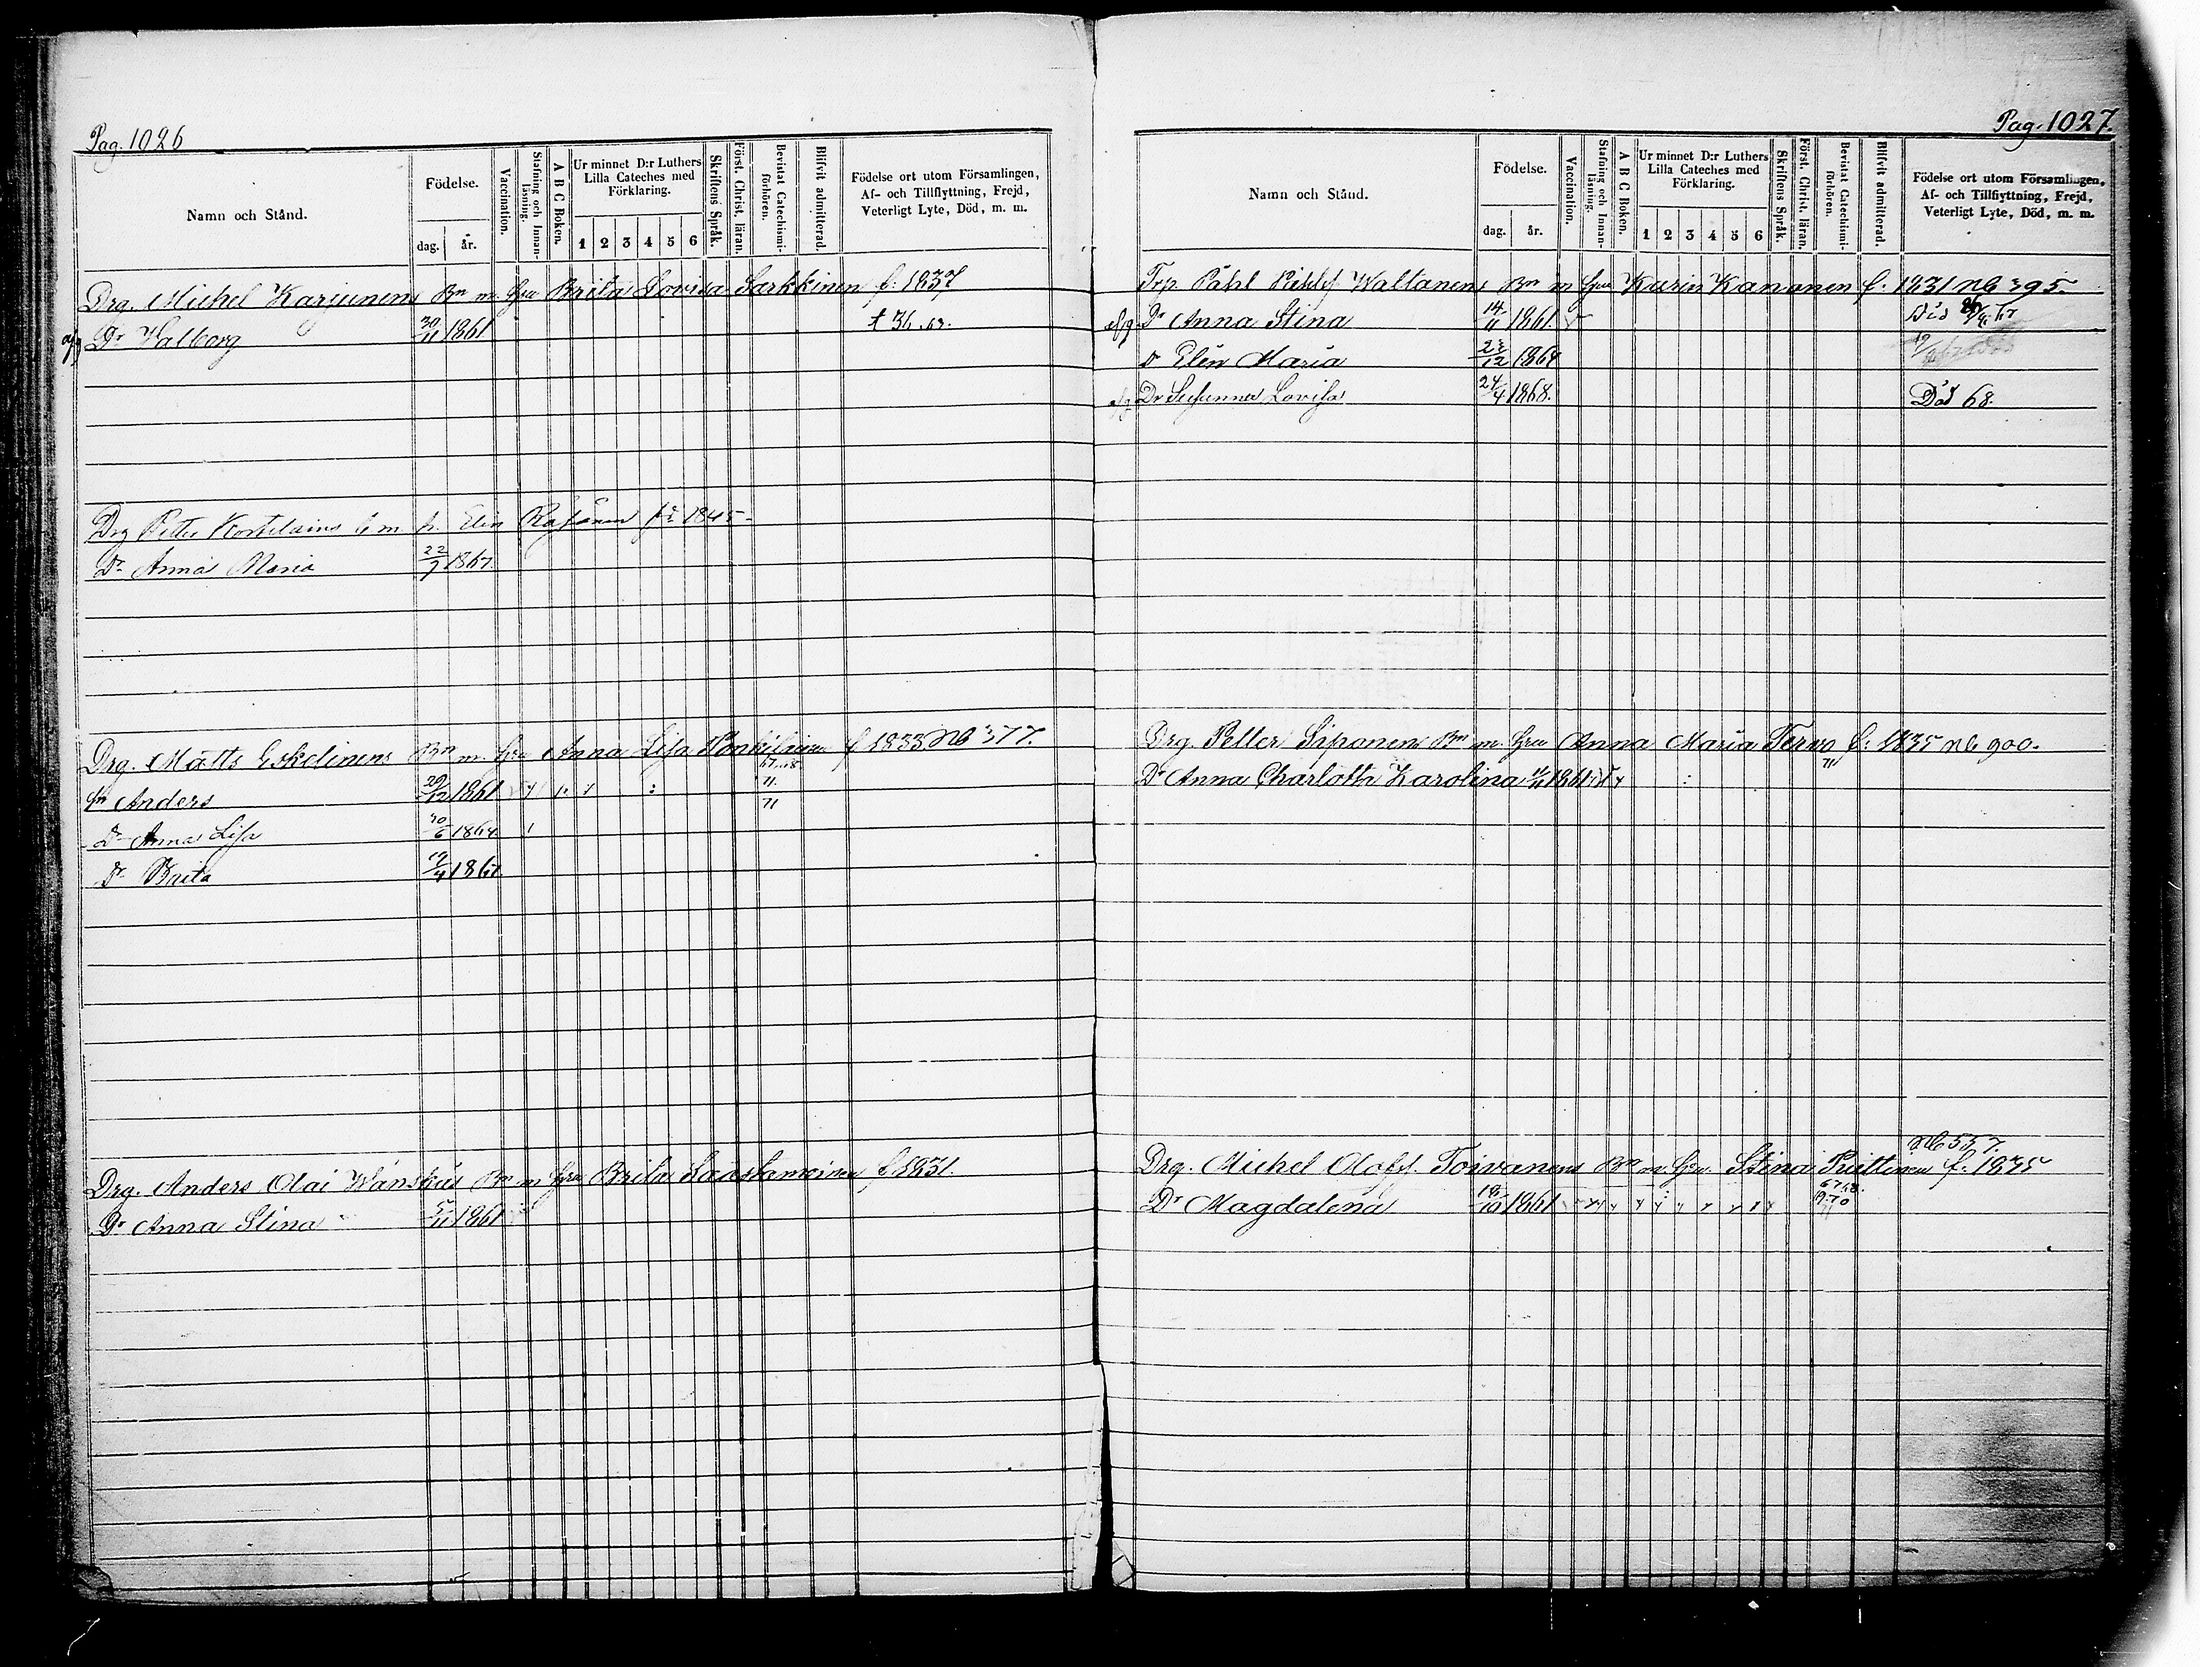 Pag. 1026
Namn och Stånd.
Födelse.
dag. år.
Vaccination.
Stafning och Innanläsning.
A B C Boken.
Ur minnet D:r Luthers Lilla Cateches med Förklaring.
1 2 3 4 5 6
Skriftens Språk.
Först. Christ. läran.
Bevistat Catechismiförhören.
Blifvit admitterad.
Födelse ort utom Församlingen,
Af- och Tillflyttning, Frejd,
Veterligt Lyte, Död, m. m.
Drg. Michel Karjunens Bn m. Hru Brita Lovisa Sarkkinen f: 1837
Dr Valborg 30/11 1861
Drg Petter m h. Elin 1845
Dr Anna Maria 22/7 1867
Drg. Matts Eskelinens Bn m. Hru Anna Lisa f 1833 No 377.
Sn Anders 29/12 1861
71
71
Dr Anna Lisa 30/6 1864
Dr Brita 1867
Drg. Anders Olai Bn m Hru Brita f 1831.
Dr Anna Stina 5/11 1861
Pag. 1027.
Namn och Stånd.
Födelse.
dag. år.
Vaccination.
Stafning och Innanläsning.
A B C Boken.
Ur minnet D:r Luthers Lilla Cateches med Förklaring.
1 2 3 4 5 6
Skriftens Språk.
Först. Christ. läran.
Bevistat Catechismiförhören.
Blifvit admitterad.
Födelse ort utom Församlingen,
Af- och Tillflyttning, Frejd,
Veterligt Lyte, Död, m. m.
Påhl Waltanens Bn m Hru Karin Kananen f. 1831 No 395.
Dr Anna Stina 14/11 1861
Dr Elin Maria 1864
Dr Susanna Lovisa 24/4 1868. Död 68.
Drg. Petter Siponens Bn m. Hru Anna Maria Tervo f: 1835 No 900.
Dr Anna Charlotta Karolina 1861 71
No 557.
Drg. Michel Olofs. Toivanens Bn m. Hru. Stina Puittinen f: 1835
Dr Magdalena 18/10 1861